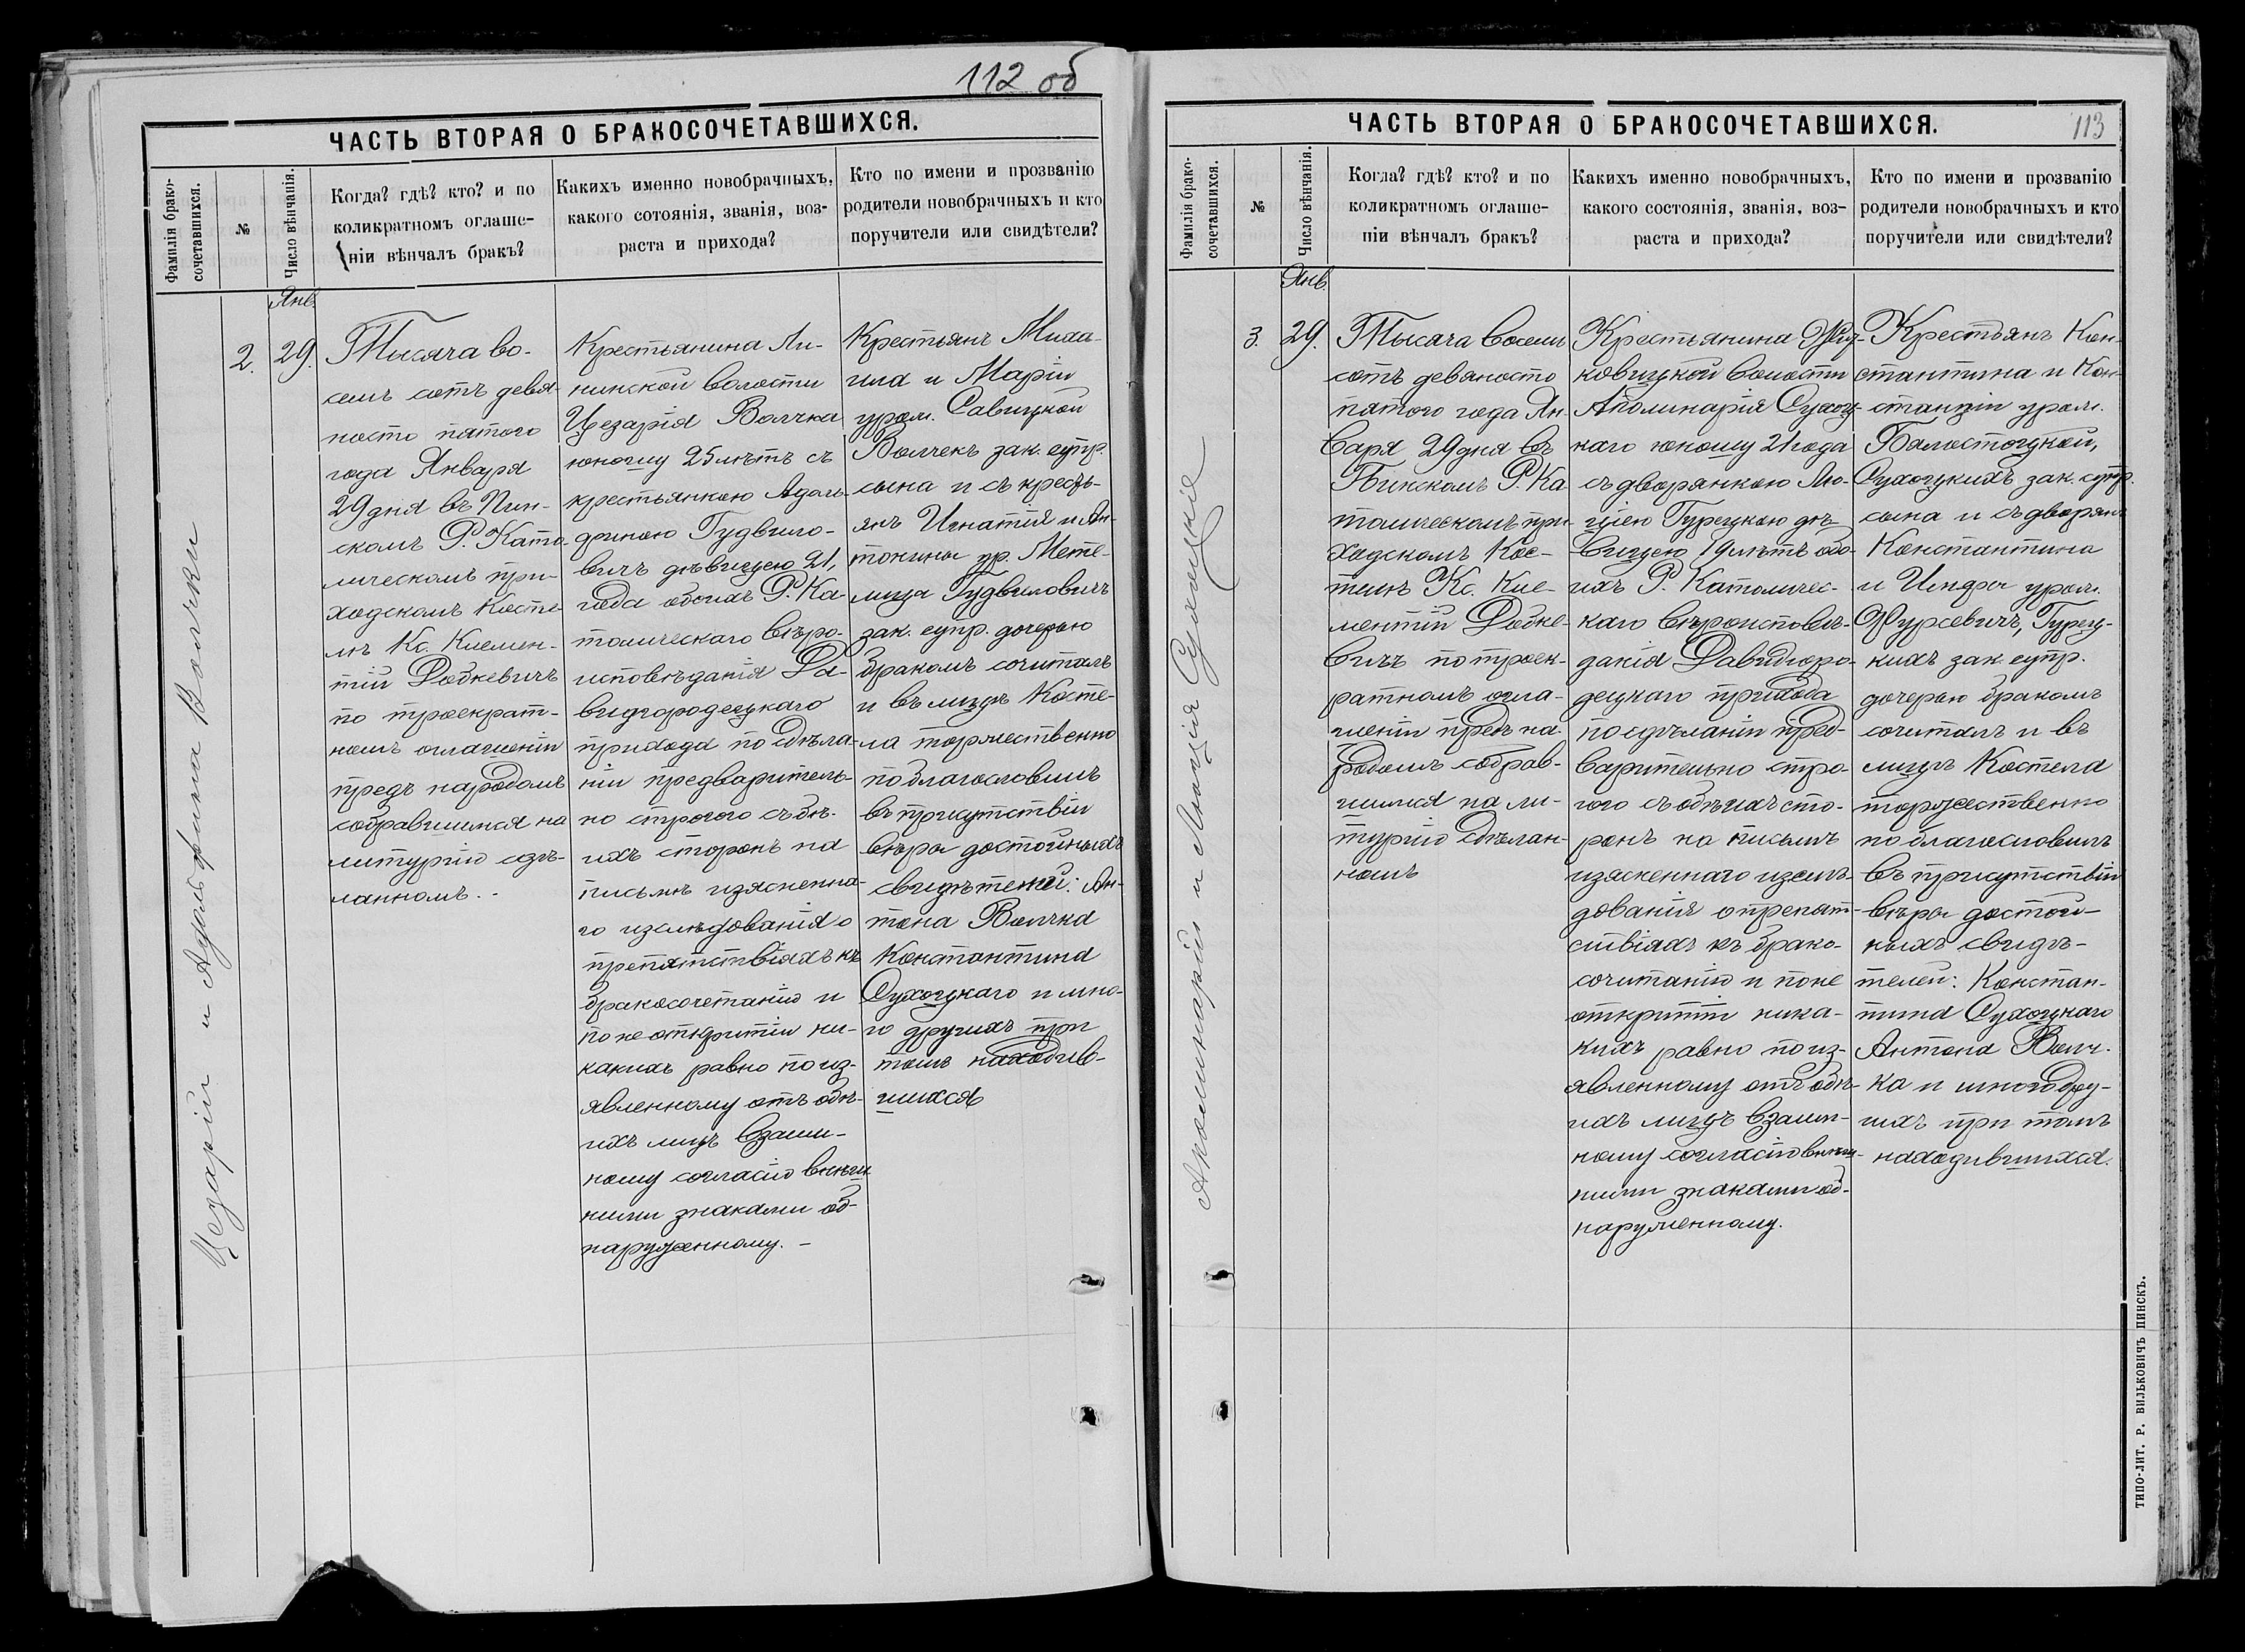 112 об
ЧАСТЬ ВТОРАЯ О БРАКОСОЧЕТАВШИХСЯ.
Фамилія брако-
сочетавшихся.
№
Число вѣнчанія.
Когда? гдѣ? кто? и по
коликратномъ оглаше-
ніи вѣнчалъ бракъ?
Какихъ именно новобрачныхъ,
какого сотоянія, званія, воз-
раста и прихода?
Кто по имени и прозванію
родители новобрачныхъ и кто
поручители или свидѣтели?
Цезарій и Адольфина Волчки
2.
Янв.
29.
Тысяча во-
семъ сотъ девя-
носто пятого
года Января
29 дня въ Пин-
скомъ Р. Като-
лическомъ при-
ходскомъ Косте-
лѣ Кс. Клемен-
тій Добкевичъ
по троекрат-
номъ оглашеніи
предъ народомъ
собравшимся на
литургію сдѣ-
ланномъ. -
Крестьянина Ли-
нинской волости
Цезарія Волчка
юношу 25 лѣтъ съ
крестьянкою Адоль-
финою Гудвило-
вичъ дѣвицею 21,
года обоихъ Р. Ка-
толическаго вѣро-
исповѣданія Да-
видгородецкаго
прихода по сдѣла-
ніи предваритель-
но строгого съ обѣ-
ихъ сторонъ на
письмѣ изясненна-
го изслѣдованія о
препятствіяхъ къ
бракосочетанію и
по не открытіи ни-
какихъ равно по из-
явленному отъ обѣ-
ихъ лицъ взаим-
ному согласію внѣш
ними знаками об-
наруженному. -
Крестьянъ Миха-
ила и Маріи
урож. Савицкой
Волчекъ зак. супр.
сына и съ кресть-
янъ Игнатія и Ан-
тонины ур. Мете-
лица Гудвиловичъ
зак. супр. дочерью
бракомъ сочиталъ
и въ лицѣ Косте-
ла торжественно
поблагословилъ
въ присутствіи
вѣры достойныхъ
свидѣтелей: Ан-
тона Волчка
Константина
Сухоцкаго и мно-
го другихъ при
томъ находив-
шихся
113
ЧАСТЬ ВТОРАЯ О БРАКОСОЧЕТАВШИХСЯ.
Фамилія брако-
сочетавшихся.
№
Число вѣнчанія.
Когда? гдѣ? кто? и по
коликратномъ оглаше-
ніи вѣнчалъ бракъ?
Какихъ именно новобрачныхъ,
какого состоянія, званія, воз-
раста и прихода?
Кто по имени и прозванію
родители новобрачныхъ и кто
поручители или свидѣтели?
Аполинарій и Люція Сухоцкіе
3.
Янв.
29.
Тысяча восемъ
сотъ девяносто
пятого года Ян
варя 29 дня въ
Пинскомъ Р. Ка
толическомъ при-
ходскомъ Кос-
телѣ Кс. Кле-
ментій Добке-
вичъ по троек-
ратномъ огла-
шеніи предъ на-
родомъ собрав-
шимся на ли-
тургію сдѣлан-
номъ
Крестьянина
ковицкой волости
Аполинарія Сухоц-
каго юношу 21 года
съ дворянкою Лю-
ціею Турецкою дѣ
вицею 19 лѣтъ обо-
ихъ Р. Католичес-
каго вѣроисповѣ-
данія Давидгоро-
децкаго прихода
по сдѣланіи пред-
варительно стро-
гого съ обѣихъ сто-
ронъ на письмѣ
изясненнаго изслѣ-
дованія о препят-
ствіяхъ къ брако-
сочитанію и по не
открытіи ника-
кихъ равно по из-
явленному отъ обѣ-
ихъ лицъ взаим-
ному согласію внѣш-
ними знаками об-
наруженному.
Крестьянъ Кон-
стантина и Кон-
станціи урож.
Бялостоцкой,
Сухоцкихъ зак. супр.
сына и съ дворянъ
Константина
и Инфы урож.
Фурсевичъ, Турец-
кихъ зак. супр.
дочерью бракомъ
сочиталъ и въ
лицѣ Костела
торжественно
поблагословилъ
въ присутствіи
вѣры достой-
ныхъ свидѣ-
телей: Констан-
тина Сухоцкаго
Антона Волч-
ка и много дру-
гихъ при томъ
находившихся.
ТИПО-ЛИТ. Р. ВИЛЬКОВИЧЪ ПИНСКЪ.